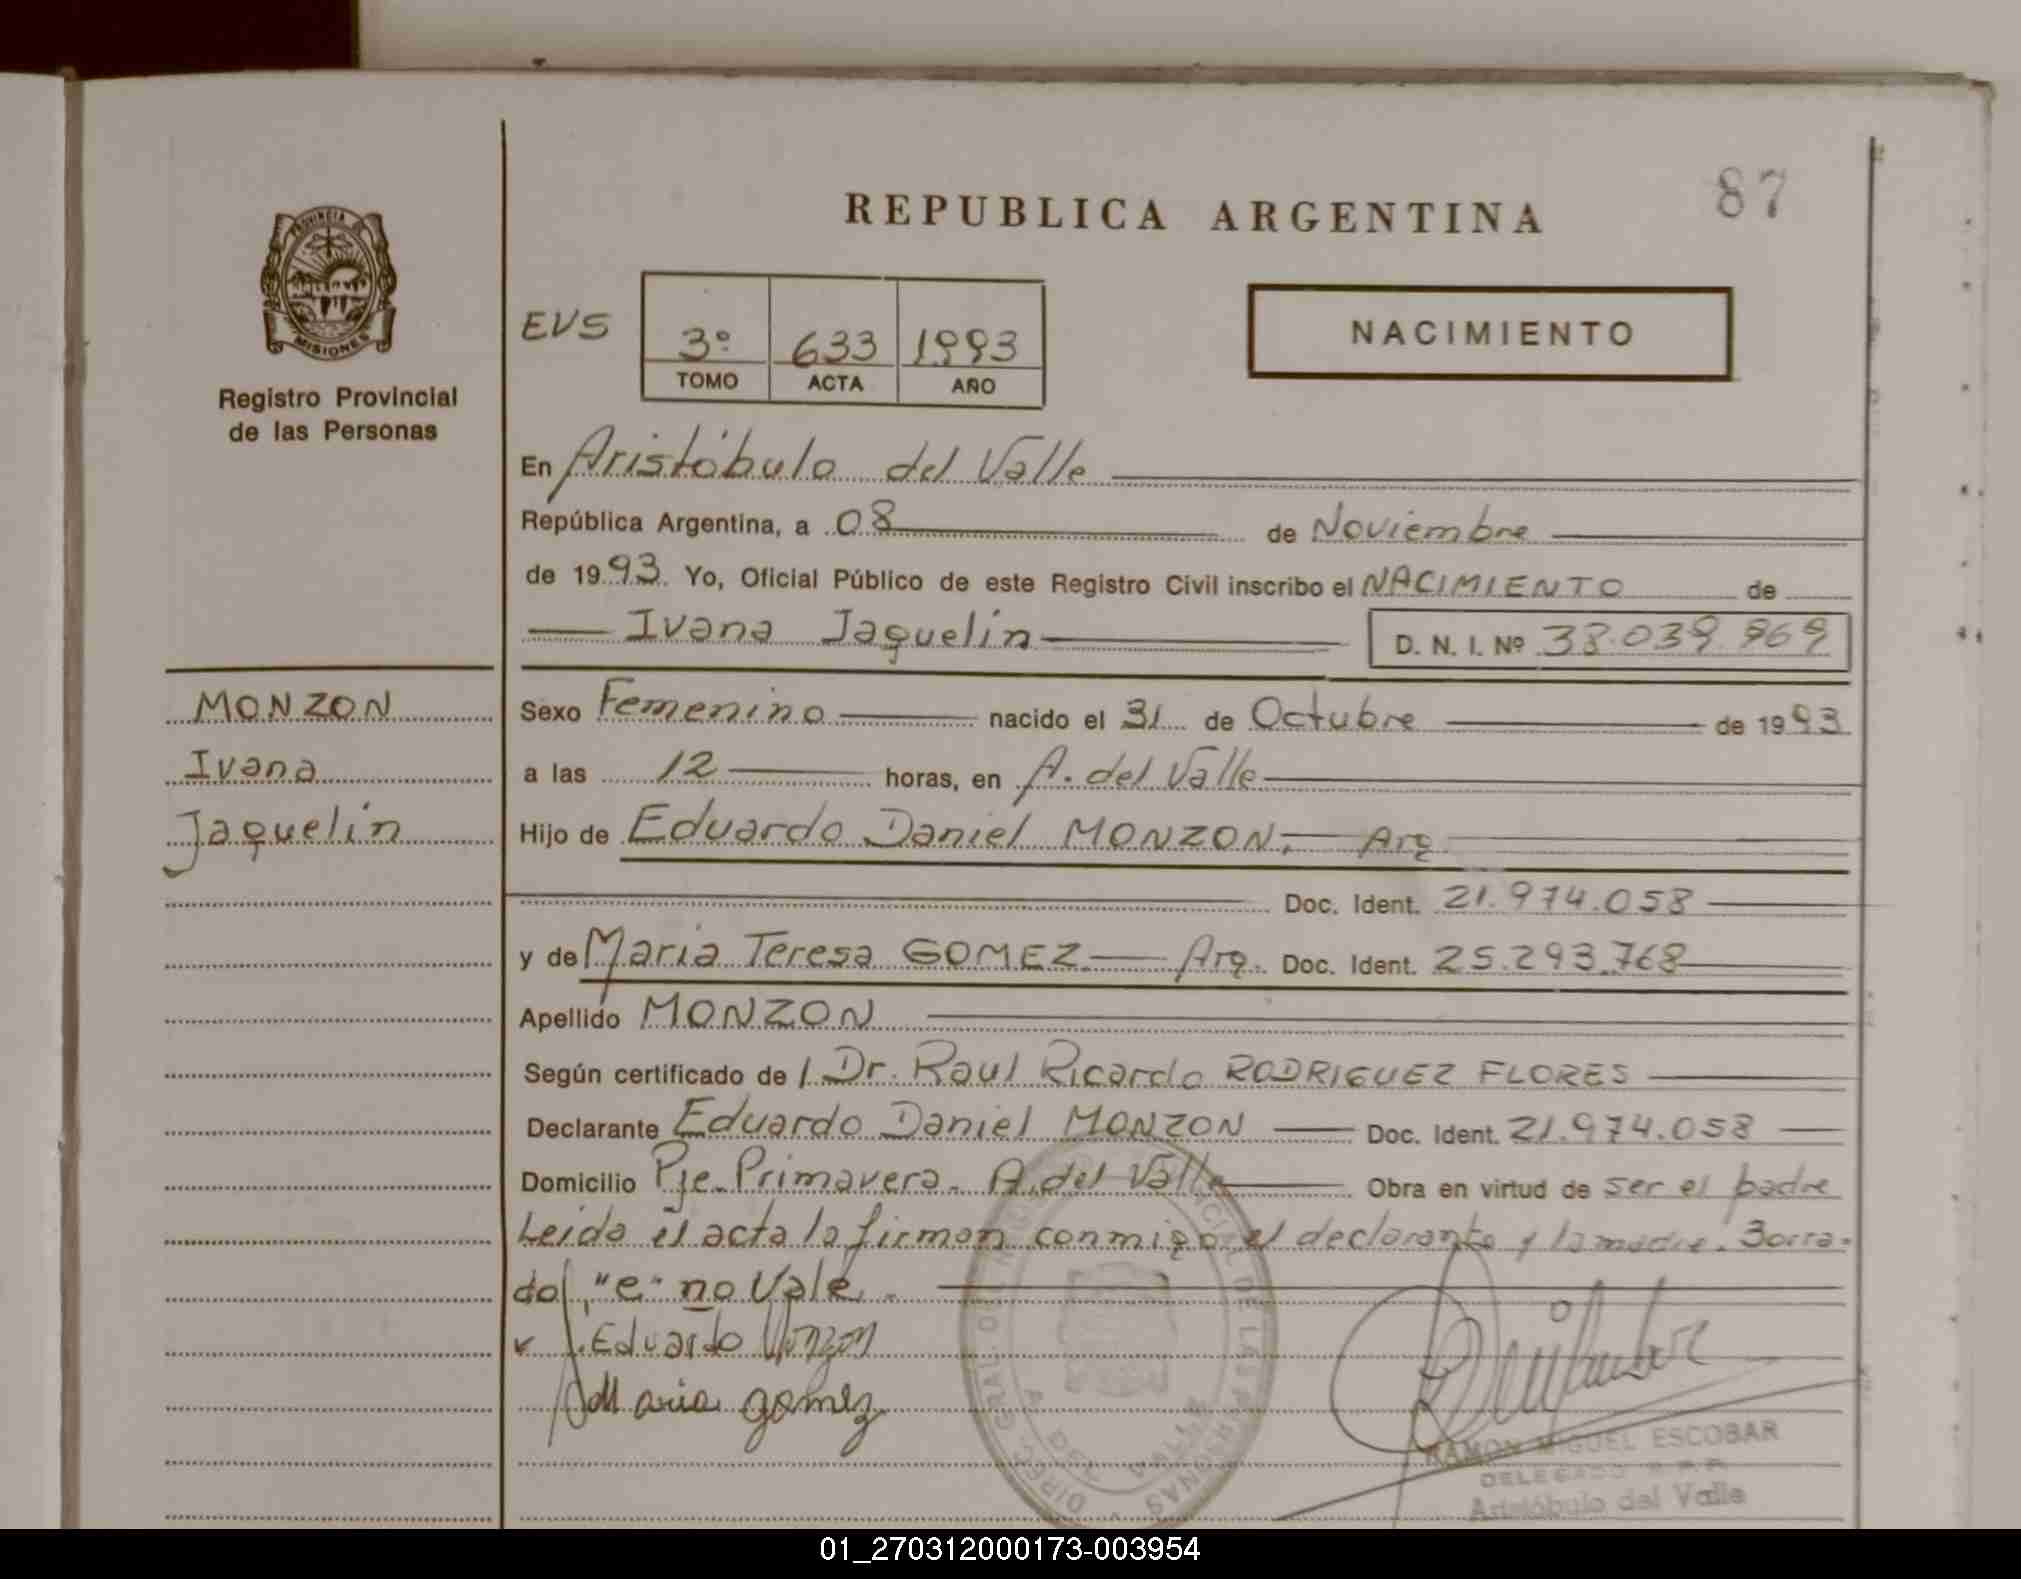 87
REPUBLICA ARGENTINA
PROVINCIA DE
MISIONES
Registro Provincial
de las Personas
EVS
3º 633 1993
TOMO ACTA AÑO
NACIMIENTO
En Aristóbulo del Valle
República Argentina, a 08 de Noviembre
de 1993 Yo, Oficial Público de este Registro Civil inscribo el NACIMIENTO de
Ivana Jaquelin D. N. I. Nº 38.039.969
MONZON
Ivana
Jaquelin
Sexo Femenino nacido el 31 de Octubre de 1993
a las 12 horas, en A. del Valle
Hijo de Eduardo Daniel MONZON, Arg
Doc. Ident. 21.974.058
y de Maria Teresa GOMEZ Arg. Doc. Ident. 25.293.768
Apellido MONZON
Según certificado de l Dr. Raul Ricardo RODRIGUEZ FLORES
Declarante Eduardo Daniel MONZON Doc. Ident. 21.974.058
Domicilio Pje. Primavera. A. del Valle Obra en virtud de ser el padre
Leida el acta la firman conmigo el declarante y la madre. Borra-
do, "e" no Vale.
Eduardo Monzon
Maria gomez
RAMON MIGUEL ESCOBAR
DELEGADO R.P.P.
Aristóbulo del Valle
01_270312000173-003954